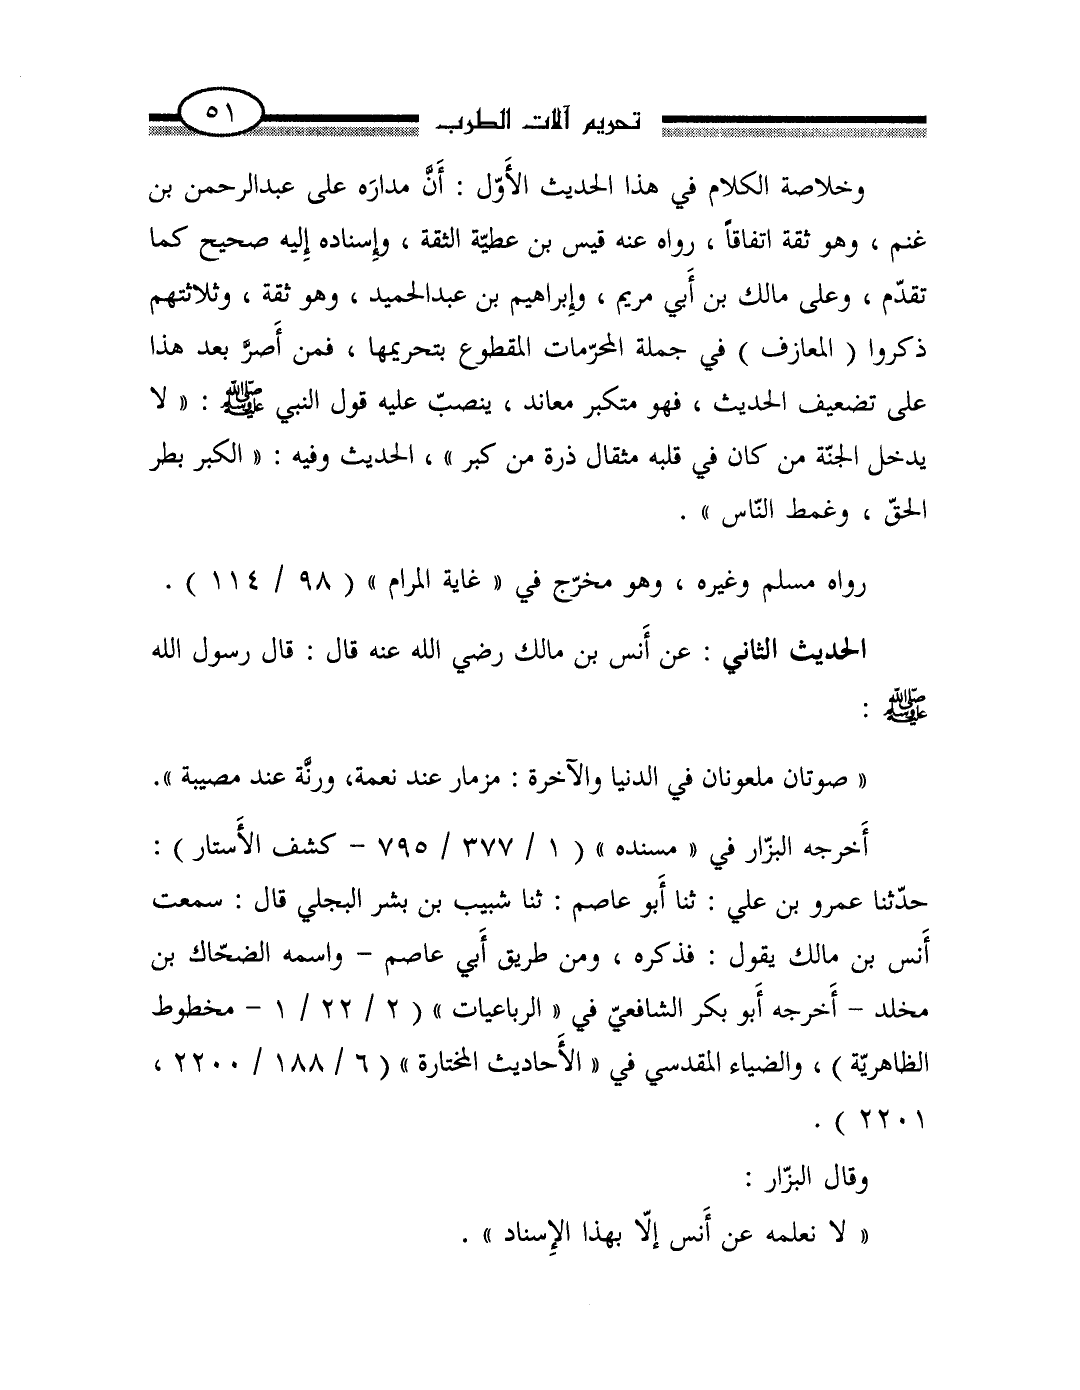 تحريم آلات الطرب ٥١
وخلاصة الكلام في هذا الحديث الأَوّل : أَنَّ مدارَه على عبدالرحمن بن
غنم ، وهو ثقة اتفاقاً ، رواه عنه قيس بن عطيّة الثقة ، وإِسناده إِليه صحيح كما
تقدّم ، وعلى مالك بن أَبي مريم ، وإِبراهيم بن عبدالحميد ، وهو ثقة ، وثلاثتهم
ذكروا ( المعازف ) في جملة المحرّمات المقطوع بتحريمها ، فمن أَصرَّ بعد هذا
على تضعيف الحديث ، فهو متكبر معاند ، ينصبّ عليه قول النبي ﷺ : « لا
يدخل الجنّة من كان في قلبه مثقال ذرة من كبر » ، الحديث وفيه : « الكبر بطر
الحقّ ، وغمط النّاس » .
رواه مسلم وغيره ، وهو مخرّج في « غاية المرام » ( ٩٨ / ١١٤ ) .
الحديث الثاني : عن أَنس بن مالك رضي الله عنه قال : قال رسول الله
ﷺ :
« صوتان ملعونان في الدنيا والآخرة : مزمار عند نعمة، ورنَّة عند مصيبة ».
أَخرجه البزّار في « مسنده » ( ١ / ٣٧٧ / ٧٩٥ – كشف الأَستار ) :
حدّثنا عمرو بن علي : ثنا أَبو عاصم : ثنا شبيب بن بشر البجلي قال : سمعت
أَنس بن مالك يقول : فذكره ، ومن طريق أَبي عاصم – واسمه الضحّاك بن
مخلد – أَخرجه أَبو بكر الشافعيّ في « الرباعيات » ( ٢ / ٢٢ / ١ – مخطوط
الظاهريّة ) ، والضياء المقدسي في « الأَحاديث المختارة » ( ٦ / ١٨٨ / ٢٢٠٠ ،
٢٢٠١ ) .
وقال البزّار :
« لا نعلمه عن أَنس إلّا بهذا الإِسناد » .